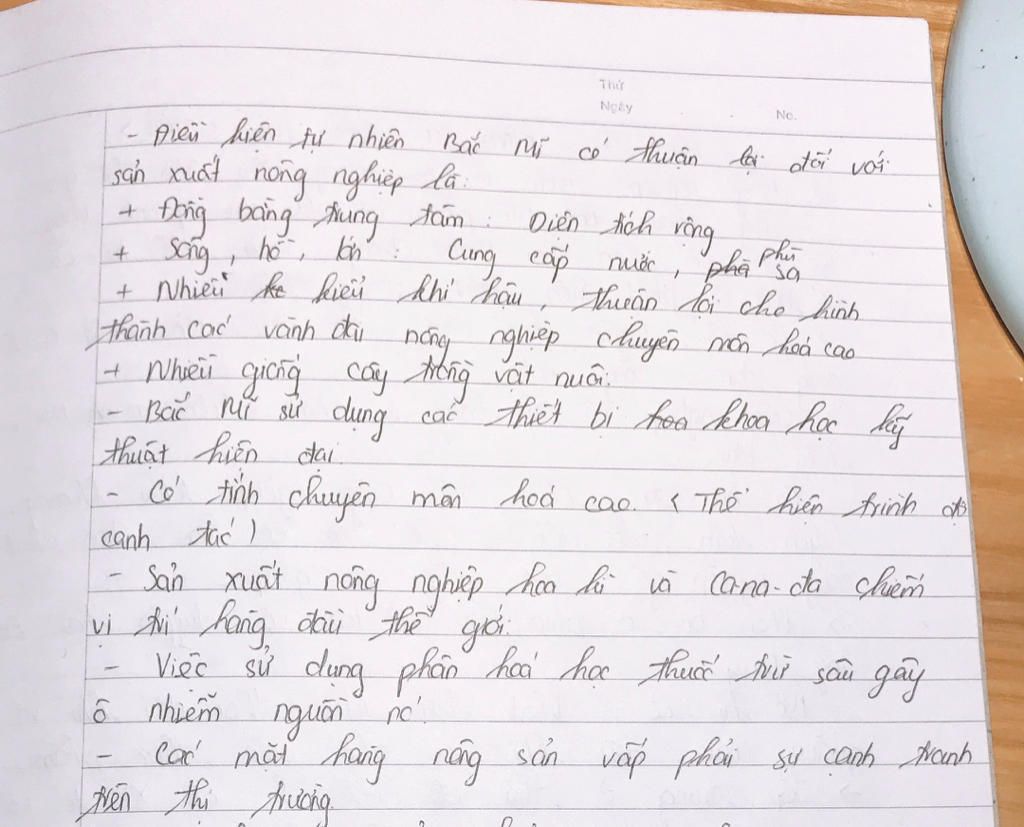 Thứ
Ngày
No.
- Điều kiện tự nhiên Bắc Mĩ có thuận lợi đối với
sản xuất nông nghiệp là:
+ Đồng bằng trung tâm : Diện tích rộng
+ Sông, hồ, lớn : Cung cấp nước, phù sa
+ Nhiều kiểu khí hậu, thuận lợi cho hình
thành các vành đai nông nghiệp chuyên môn hoá cao
+ Nhiều giống cây trồng vật nuôi.
- Bắc Mĩ sử dụng các thiết bị khoa học kỹ
thuật hiện đại.
- Có tính chuyên môn hoá cao. (Thể hiện trình độ
canh tác)
- Sản xuất nông nghiệp hoa kì và Ca-na-đa chiếm
vị trí hàng đầu thế giới.
- Việc sử dụng phân hoá học thuốc trừ sâu gây
ô nhiễm nguồn nớ.
- Các mặt hàng nông sản vấp phải sự cạnh tranh
trên thị trường